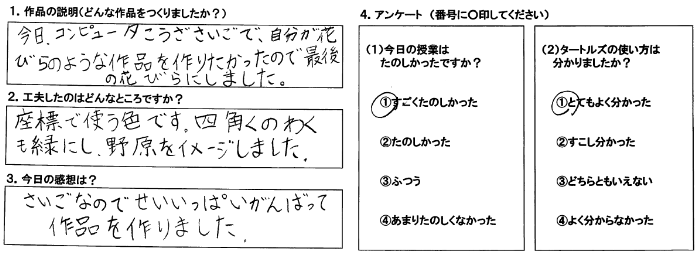 1. 作品の説明(どんな作品をつくりましたか?)
今日、コンピュータこうざさいごで、自分が花
びらのような作品を作りたかったので最後
の花びらにしました。
2. 工夫したのはどんなところですか?
座標で使う色です。四角くのわく
も緑にし、野原をイメージしました。
3. 今日の感想は?
さいごなのでせいいっぱいがんばって
作品を作りました。
4. アンケート (番号に○印してください)
(1)今日の授業は
たのしかったですか?
①すごくたのしかった
②たのしかった
③ふつう
④あまりたのしくなかった
(2)タートルズの使い方は
分かりましたか?
①とてもよく分かった
②すこし分かった
③どちらともいえない
④よく分からなかった